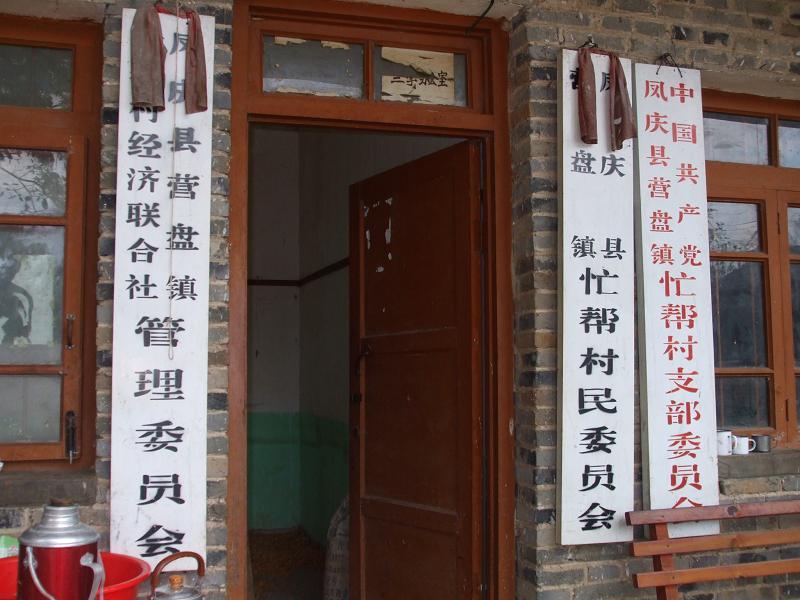 凤庆县营盘镇
村经济联合社
管理委员会
凤庆县
营盘镇
忙帮村民委员会
中国共产党
凤庆县营盘镇
忙帮村支部委员会